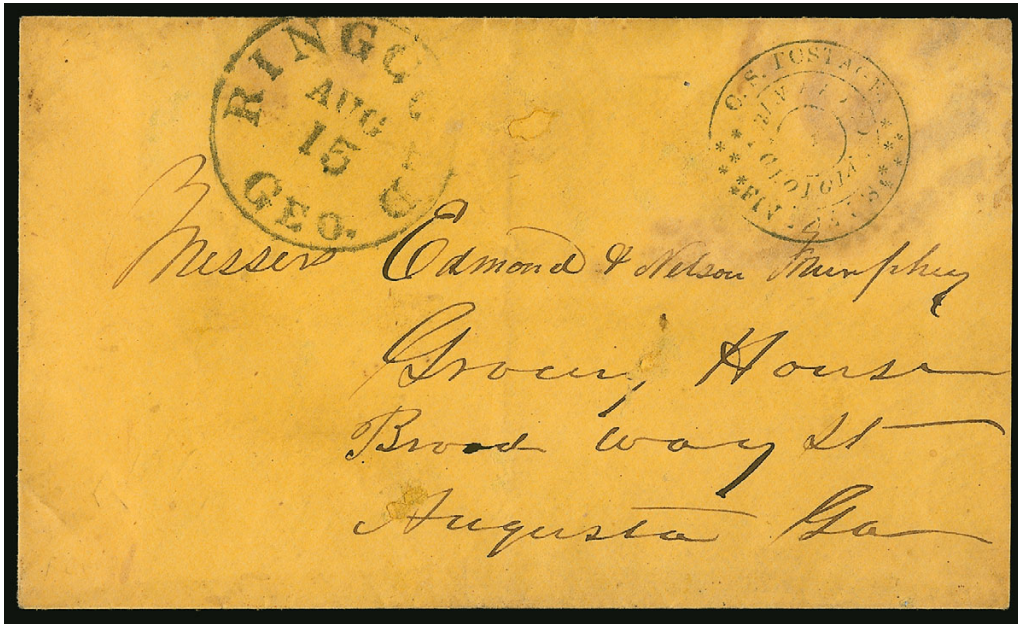 AUG
15
GEO.
C. S. POSTAGE.
Messers Edmond & Nelson Murphey
Grocery House
Broad way St
Augusta Ga